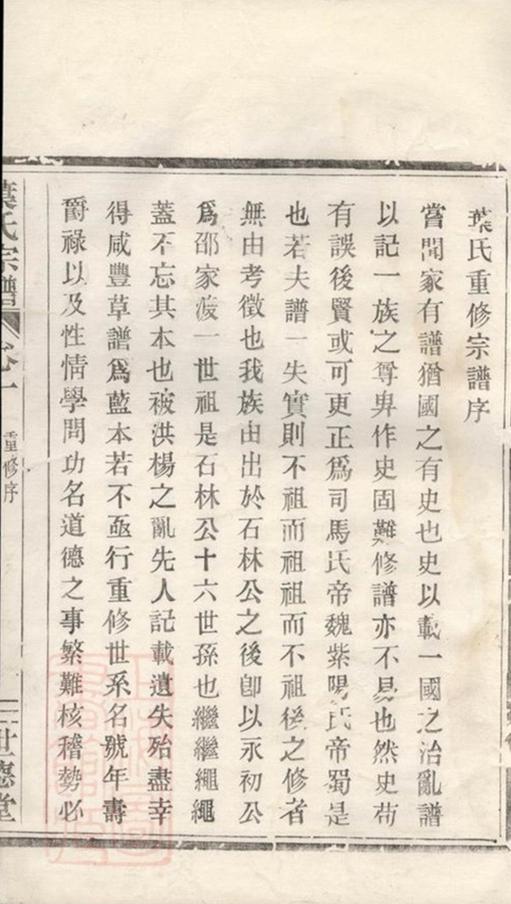 葉氏重修宗譜序
嘗聞家有譜猶國之有史也史以載一國之治亂譜
以記一族之尊卑作史固難修譜亦不易也然史苟
有誤後賢或可更正爲司馬氏帝魏紫陽氏帝蜀是
也若夫譜一失實則不祖而祖祖而不祖後之修者
無由考徵也我族由出於石林公之後卽以永初公
爲邵家渡一世祖是石林公十六世孫也繼繼繩繩
蓋不忘其本也被洪楊之亂先人記載遺失殆盡幸
得咸豐草譜爲藍本若不亟行重修世系名號年壽
爵祿以及性情學問功名道德之事繁難核稽勢必
葉氏宗譜 卷一
重修序
世德堂